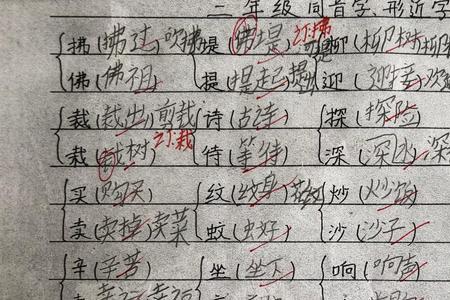 二年级同音字、形近字
拂(拂过)吹拂 堤( 堤) 柳(柳树)柳
佛(佛祖) 提(提起)提出 迎(迎接)欢迎
裁(裁出)剪裁 诗(古诗) 探(探险)
栽(栽树) 待(等待) 深(深水)深
买(购买) 纹(纹身) 炒(炒饭)
卖(卖掉)卖菜 蚊(蚊好) 沙(沙子)
辛(辛苦) 坐(坐下) 响(响声)
幸